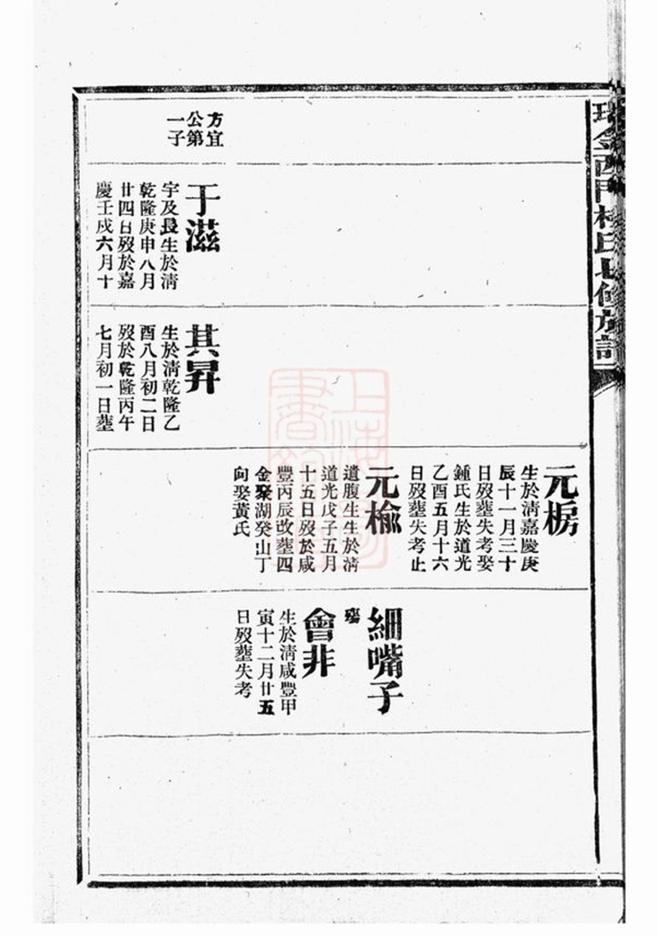 瑞金西門楊氏七修族譜
方宜
公第
一子
于滋
字及長生於清
乾隆庚申八月
廿四日歿於嘉
慶壬戌六月十
其昇
生於清乾隆乙
酉八月初二日
歿於乾隆丙午
七月初一日塟
元枴
生於清嘉慶庚
辰十一月三十
日歿塟失考娶
鍾氏生於道光
乙酉五月十六
日歿塟失考止
元楡
遺腹生生於清
道光戊子五月
十五日歿於咸
豐丙辰改塟四
金聚湖癸山丁
向娶黃氏
細嘴子
殤
會非
生於清咸豐甲
寅十二月廿五
日歿塟失考
上海圖書館藏